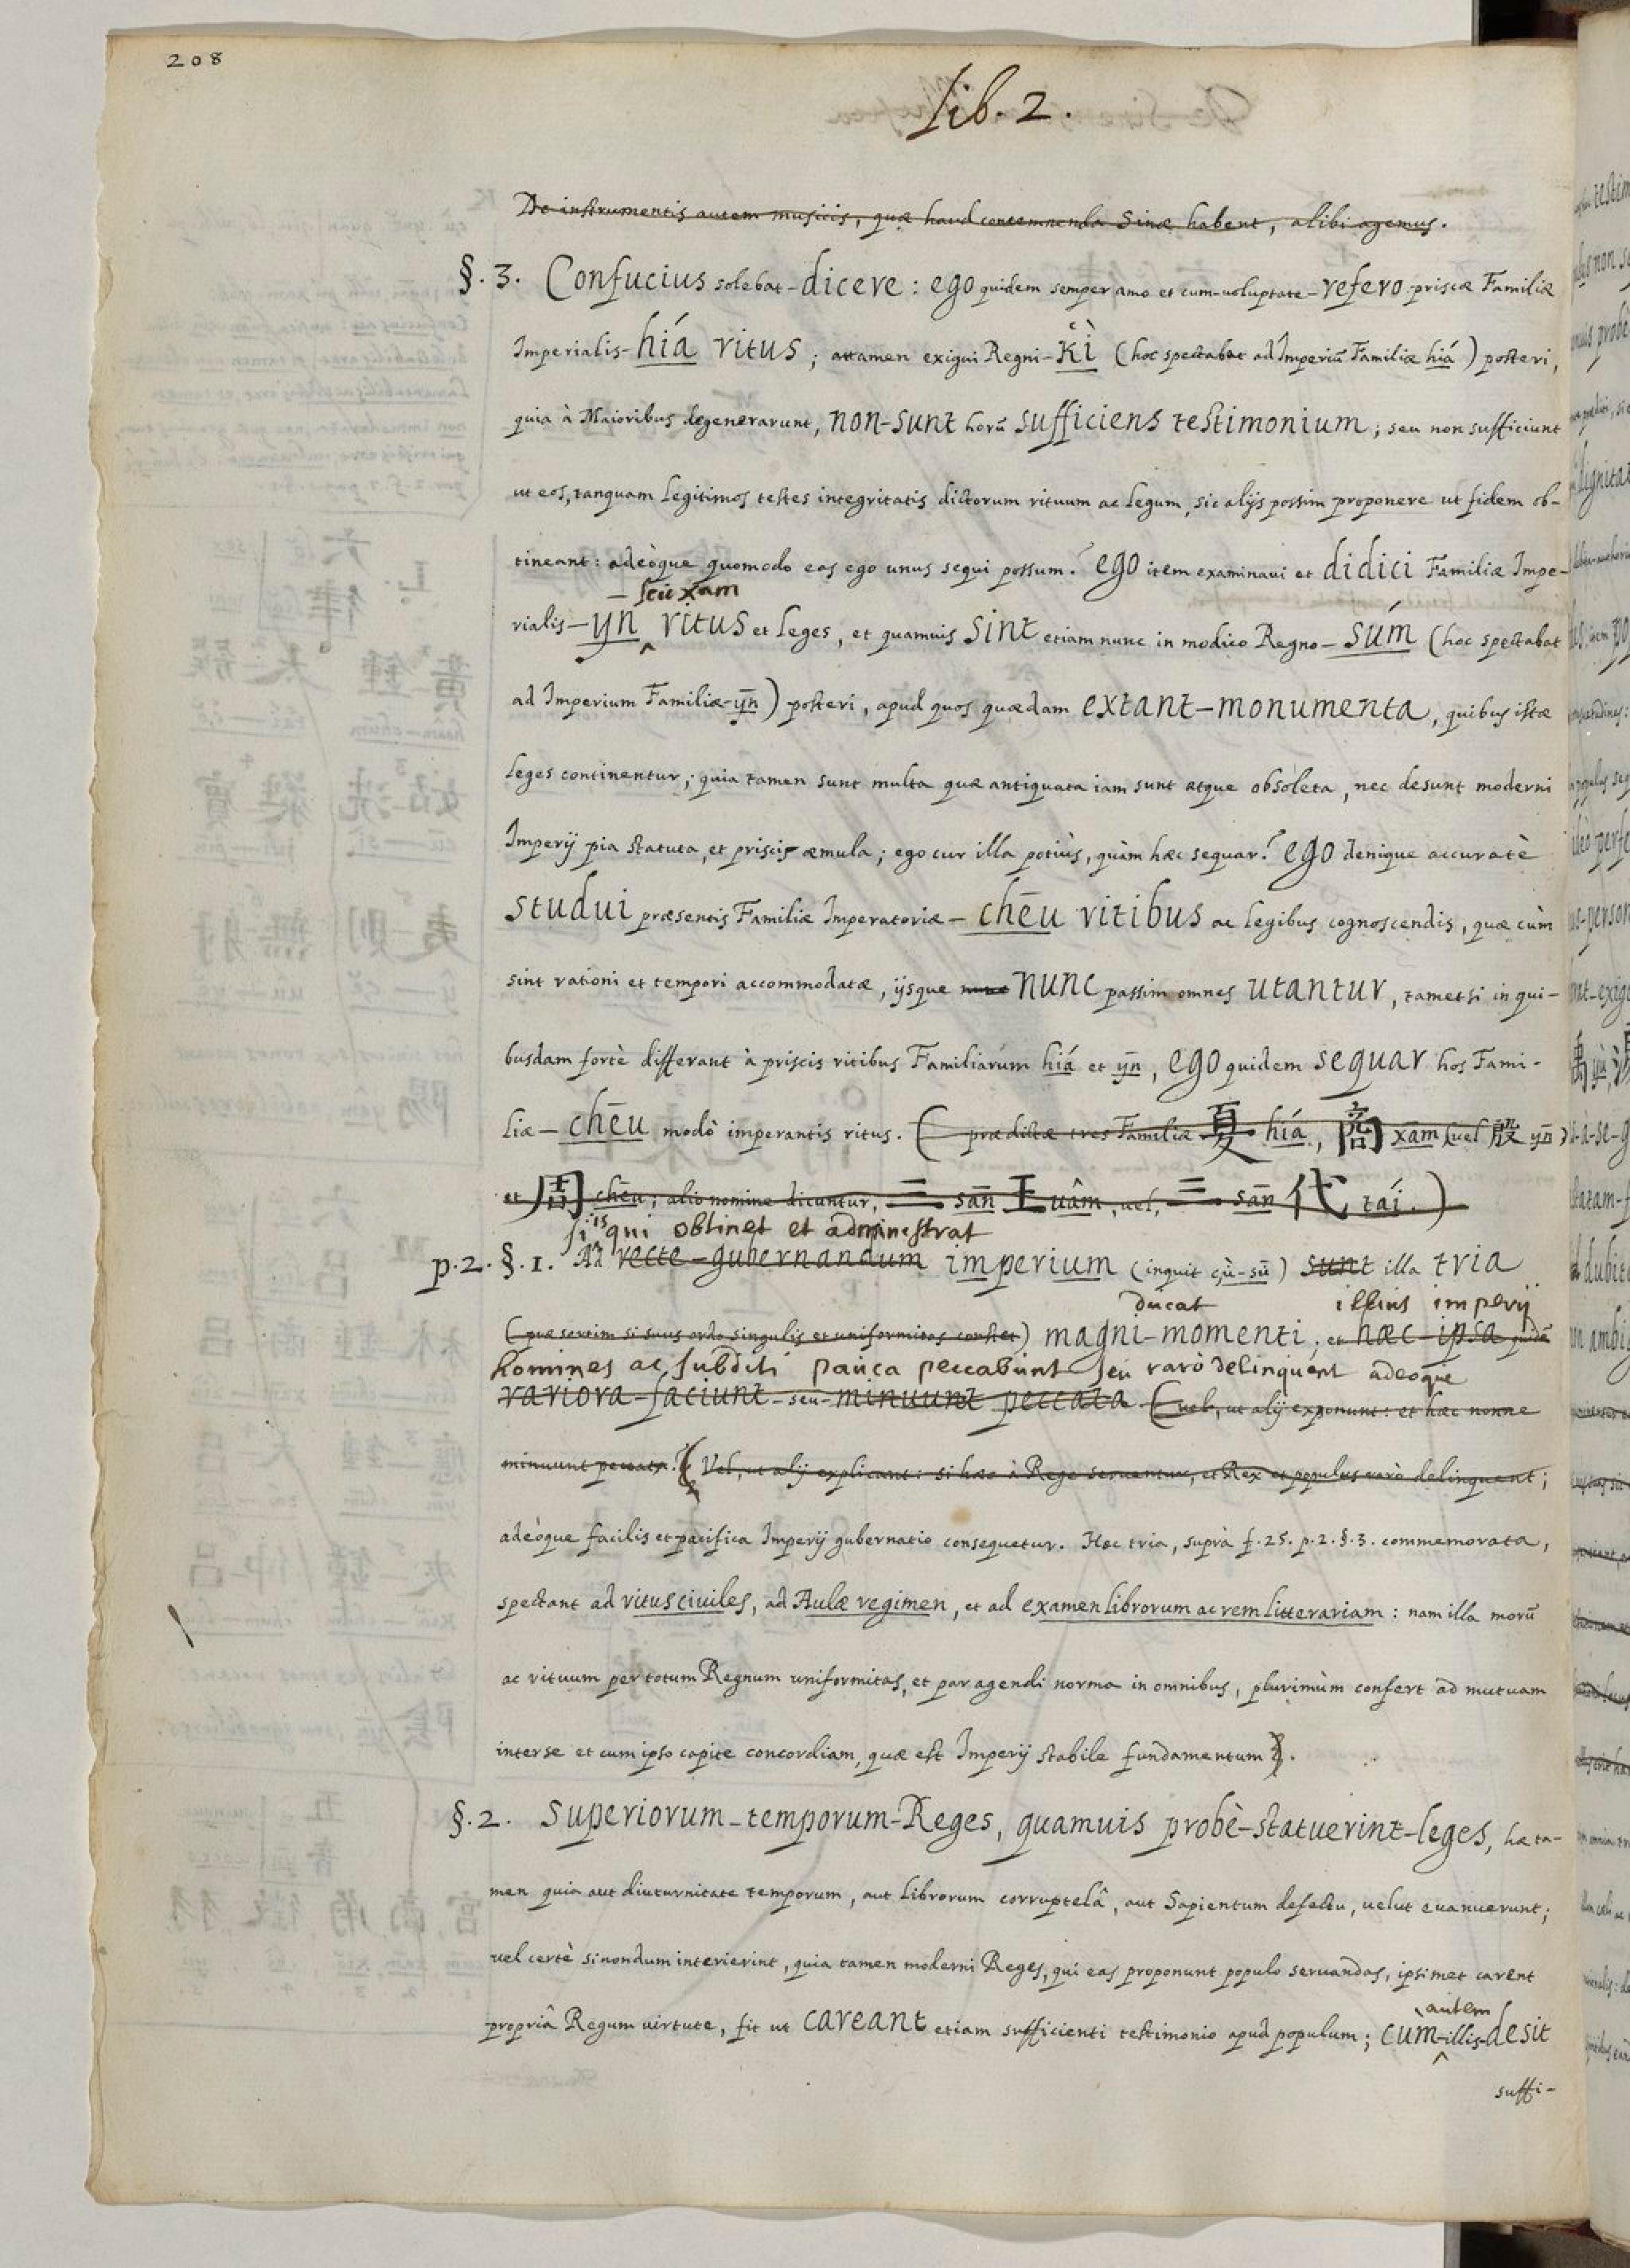 208
Lib. 2.
De instrumentis autem musicis, quæ haud contemnenda Sinæ habent, alibi agemus.
§. 3. Confucius solebat-dicere: ego quidem semper amo et cum-voluptate-refero priscæ Familiæ
Imperialis-hiá ritus; attamen exigui Regni-Kì (hoc spectabat ad Imperiū Familiæ hiá) posteri,
quia à Maioribus degenerarunt, non-sunt horū sufficiens testimonium; seu non sufficiunt
ut eos, tanquam legitimos testes integritatis dictorum rituum ac legum, sic alijs possim proponere ut fidem ob-
tineant: adeòque quomodo eas ego unus sequi possum? ego item examinaui et didici Familiæ Impe-
– seu xam
rialis-yn ritus et leges, et quamuis sint etiam nunc in modico Regno-súm (hoc spectabat
ad Imperium Familiæ-yn̄) posteri, apud quos quædam extant-monumenta, quibus istæ
leges continentur; quia tamen sunt multa quæ antiquata iam sunt atque obsoleta, nec desunt moderni
Imperij pia statuta, et priscis æmula; ego cur illa potiùs, quàm hæc sequar? ego denique accuratè
studui præsentis Familiæ Imperatoriæ-chēu ritibus ac legibus cognoscendis, quæ cùm
sint rationi et tempori accommodatæ, ijsque nunc nunc passim omnes utantur, tametsi in qui-
busdam fortè differant à priscis ritibus Familiarum hiá et yn̄, ego quidem sequar hos Fami-
liæ-chēu modò imperantis ritus. ( prædictæ tres Familiæ 夏 hiá, 商 xām (uel 殷 yn̄)
et 周 chēu; alio nomine dicuntur, 三 sān 王 uâm, uel, 三 sān 代 tái.)
si is qui obtinet et administrat
p. 2. §. 1. Ad recte-gubernandum imperium (inquit çù-sū) sunt illa tria
ducat illius imperij
(præsertim si suus ordo singulis et uniformitas constet) magni-momenti; et hæc-ipsa quidē
homines ac subditi pauca peccabunt seu rarò delinquent adeoque
rariora-faciunt-seu-minuunt peccata (uel, ut alij exponunt: et hæc nonne
minuunt peccata? (Vel, ut alij explicant: si hæc à Rege seruentur, et Rex et populus rarò delinquent;
adeòque facilis et pacifica Imperij gubernatio consequetur. Hæc tria, suprà f. 25. p. 2. §. 3. commemorata,
spectant ad ritus ciuiles, ad Aulæ regimen, et ad examen librorum ac rem litterariam: nam illa morū
ac rituum per totum Regnum uniformitas, et par agendi norma in omnibus, plurimùm confert ad mutuam
inter se et cum ipso capite concordiam, quæ est Imperij stabile fundamentum).
§. 2. Superiorum-temporum-Reges, quamuis probè-statuerint-leges, hæ ta-
men quia aut diuturnitate temporum, aut librorum corruptelâ, aut Sapientum defectu, uelut euanuerunt;
uel certè si nondum interierint, quia tamen moderni Reges, qui eas proponunt populo seruandas, ipsimet carent
propriâ Regum uirtute, fit ut careant etiam sufficienti testimonio apud populum; cùm-illis-desit
autem
suffi-